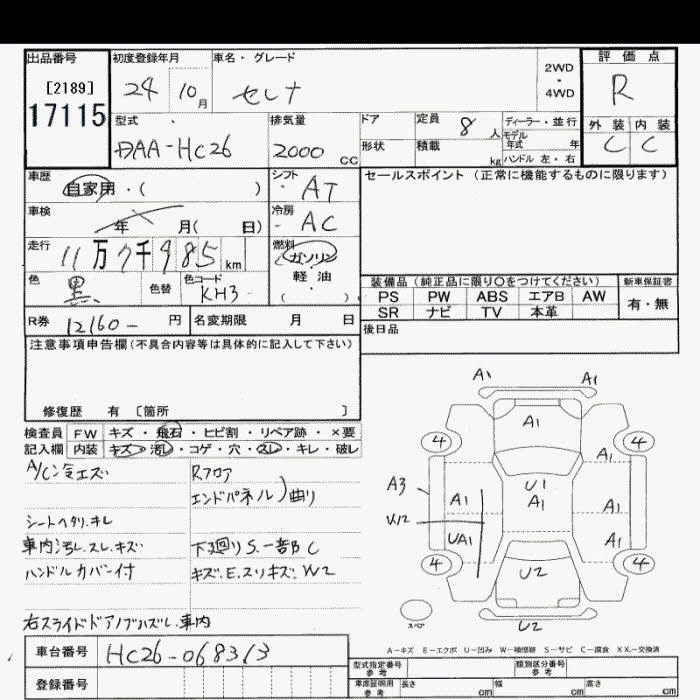 出品番号
[2189]
17115
初度登録年月
24 10月
車名・グレード
セレナ
2WD
・
4WD
評価点
R
外装 内装
C C
型式
DAA-HC26
排気量
2000 CC
ドア
形状
定員
8人
積載
kg
ディーラー・並行
モデル
年式 年
ハンドル 左・右
車歴
自家用・( )
シフト
AT
セールスポイント (正常に機能するものに限ります)
車検
年 月( 日)
冷房
AC
走行
11万 7千 985 km
燃料
ガソリン
軽油
( )
色
黒
色替
色コード
KH3
装備品 (純正品に限り○をつけてください)
新車保証書
PS PW ABS エアB AW
有・無
SR ナビ TV 本革
R券 12160- 円
名変期限 月 日
後日品
注意事項申告欄(不具合内容等は具体的に記入して下さい)
修復歴 有 〔箇所 〕
検査員 FW キズ・飛石・ヒビ割・リペア跡・×要
記入欄 内装 キズ・汚れ・コゲ・穴・スレ・キレ・破レ
A/C冷エズ
Rフロア
エンドパネル)曲り
シートヘタリ.キレ
車内汚レ.スレ.キズ
下廻りS.一部C
ハンドルカバー付
キズ.E.スリキズ.W2
右スライドドアノブハズレ.車内
A1 A1
A1
4 4
A1
A3
U1
A1
A1
A1
U12
UA1
A1
4 4
U2
スペア
U2
A-キズ E-エクボ U-凹み W-補修跡 S-サビ C-腐食 XX-交換済
車台番号 HC26-068313
登録番号
型式指定番号
参考
類別区分番号
参考
車庫証明用
参考
長さ cm
幅 cm
高さ cm